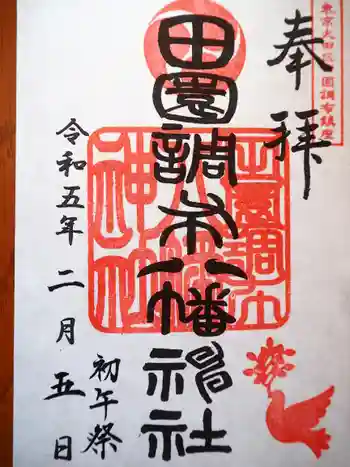 東京大田区田園調布鎮座
奉拝
田園調布八幡神社
令和五年二月五日
初午祭